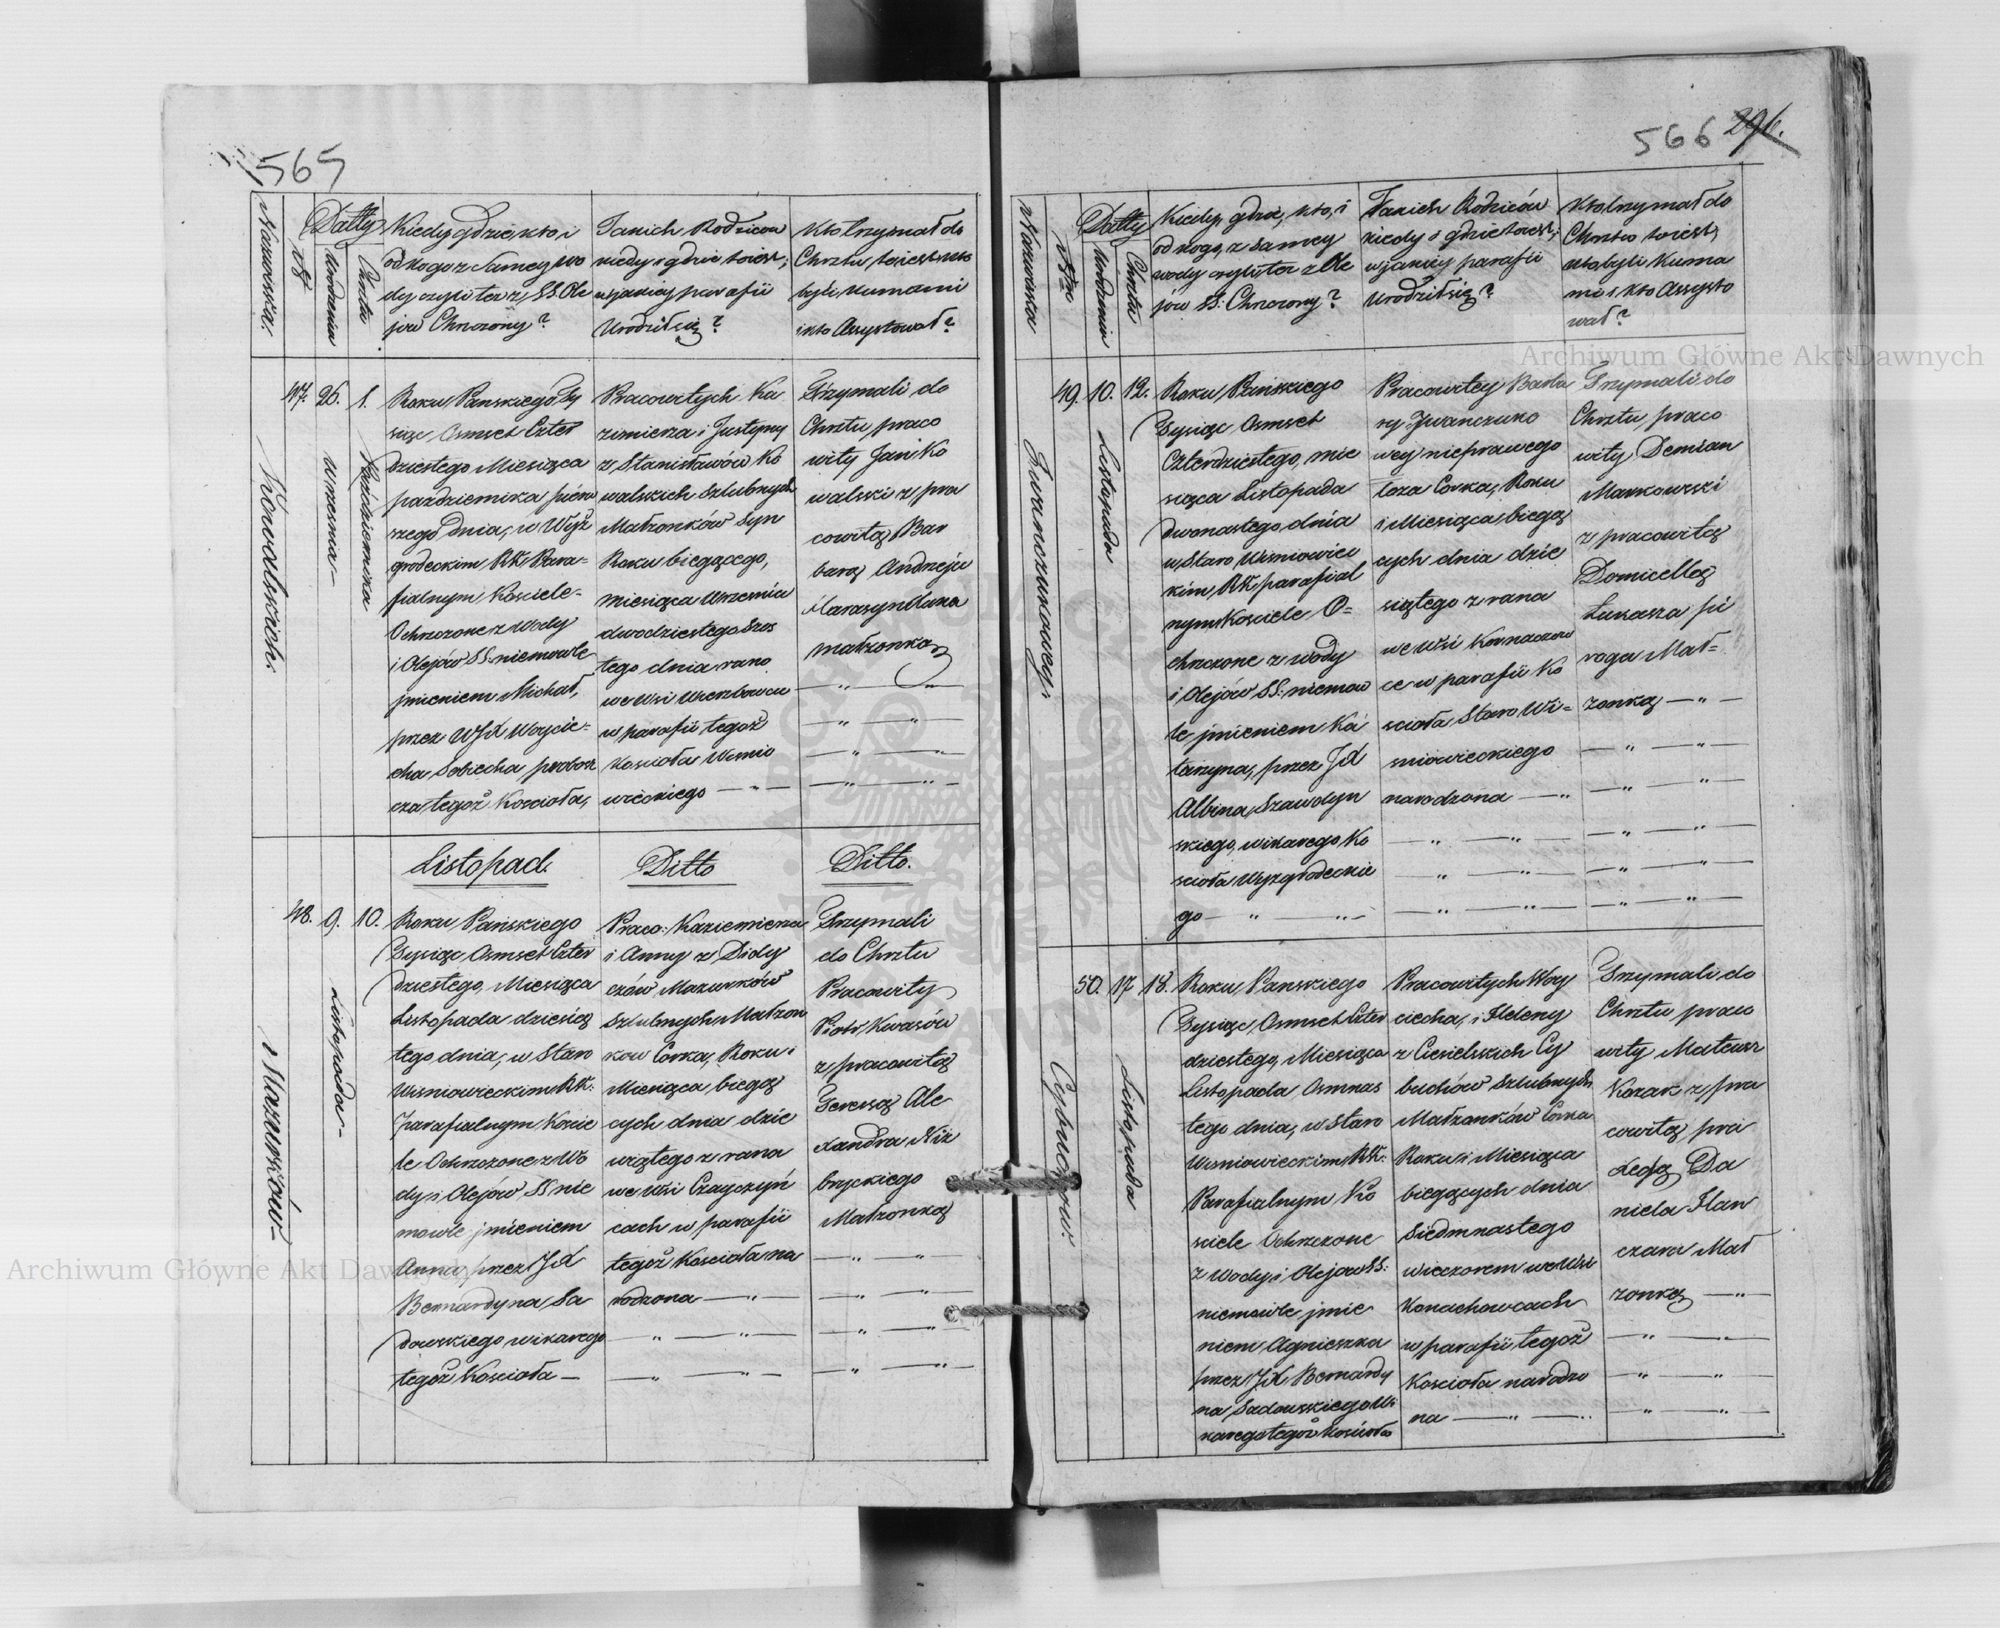 565
Nazwiska.
Nr
Datty
Urodzenia
Chrztu
Kiedy, gdzie, kto, i
od kogo z Samey wo
dy czyli tez z SS. Ole
jów Chrzczony?
Jakich Rodziców
kiedy i gdzie toiest;
w jakiey parafii
Urodził się?
Kto trzymał do
Chrztu toiest kto
byli kumami
i kto Assystował?
47.
26.
1.
Kowalskich.
Września
Października
Roku Panskiego Ty
siąc Osmset Czter
dziestego Miesiąca
pazdziernika pierw
szego dnia, w Wyż
grodeckim RK. Para-
fialnym Kosciele-
Ochrzczone z Wody
i Olejów SS. niemowle
jmieniem Michał,
przez WJX Woycie-
cha Sobiecha probosz
cza tegoż Koscioła,
Pracowitych Ka
zimierza i Justyny
z Stanisławów Ko
walskich szlubnych
Małzonków Syn
Roku biegącego,
miesiąca Wrzesnia
dwodziestego szos
tego dnia rano
we Wsi Wierzbowcu
w parafii tegoż
Koscioła Wisnio
wieckiego
Trzymali do
Chrztu praco
wity Jan Ko
walski z pra
cowitą Bar
barą Andrzeja
Harasymluka
małzonką
Listopad.
Ditto
Ditto.
48.
9.
10.
Mazurków
Listopada
Roku Pańskiego
Tysiąc Osmset Czter
dziestego, Miesiąca
Listopada dziesią
tego dnia, w Staro
Wisniowieckim RK.
Parafialnym Koscie
le Ochrzczone z Wo
dy i Olejów SS nie
mowle jmieniem
Anna, przez JX
Bernardyna Sa
dowskiego wikarego
tegoż Koscioła
Praco: Kaziemierza
i Anny z Didy
czów Mazurków
Szlubnych Małzon
kow Corka, Roku i
Miesiąca biegą
cych dnia dzie
wiątego z rana
we Wsi Czayczyń
cach w parafii
tegoż Koscioła na
rodzona
Trzymali
do Chrztu
Pracowity
Piotr Kwasów
z pracowitą
Teressą Ale
xandra Niz
bryckiego
Małzonką
566 296.
Nazwiska
Nr
Datty
Urodzenia
Chrztu
Kiedy, gdzie, kto, i
od kogo, z samey
wody czyli tez z Ole
jów SS: Chrzczony?
Jakich Rodziców
kiedy i gdzie toiest;
w jakiey parafii
Urodził się?
Kto trzymał do
Chrztu toiest,
kto byli Kuma
mi i kto Assysto
wał?
49.
10.
12.
Iwanczukowey.
Listopada
Roku Pańskiego
Tysiąc Osmset
Czterdziestego, mie
siąca Listopada
dwonastego dnia
w Staro Wisniowiec
kim, RK. parafial
nym Kosciele O=
chrzczone z wody
i Olejów SS: niemow
le jmieniem Ka
tarzyna, przez JX
Albina Szawdyn
skiego, wikarego Ko
scioła Wyzgrodeckie
go
Pracowitey Barba
ry Iwanczuko
wey nieprawego
łoza Corka, Roku
i Miesiąca biegą
cych dnia dzie
siątego z rana
we Wsi Kornaczow
ce w parafii Ko
scioła Staro Wi=
sniowieckiego
narodzona
Trzymali do
Chrztu praco
wity Demian
Markowski
z pracowitą
Domicellą
Łukasza Pi
roga Mał=
zonką
50.
17
18.
Cybuchów.
Listopada
Roku Panskiego
Tysiąc Osmset Czter
dziestego, Miesiąca
Listopada Osmnas
tego dnia, w Staro
Wisniowieckim, RK.
Parafialnym Ko
sciele Ochrzczone
z Wody i Olejow SS:
niemowle jmie
niem Agnieszka
przez JX Bernardy
na Sadowskiego Wi
karego tegoż Kosciola
Pracowitych Woy
ciecha, i Heleny
z Ciesielskich Cy
buchów szlubnych
Małzonków Corka
Roku i Miesiąca
biegących dnia
Siedmnastego
wieczorem we Wsi
Konachowcach
w parafii tegoż
Kosciola narodzo
na
Trzymali do
Chrztu praco
wity Mateusz
Kozak z pra
cowitą pra
xedą Da
niela Han
czara Mał
zonką
Archiwum Główne Akt Dawnych
Archiwum Główne Akt Dawnych